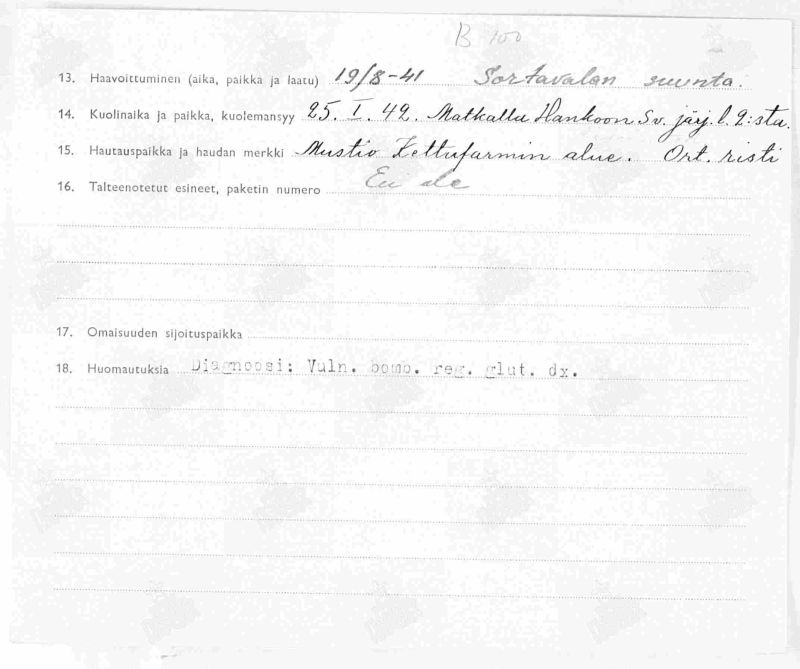 B 100
13. Haavoittuminen (aika, paikka ja laatu) 19/8-41 Sortavalan suunta.
14. Kuolinaika ja paikka, kuolemansyy 25. I. 42. Matkalla Hankoon Sv. järj. l. 2:sta.
15. Hautauspaikka ja haudan merkki Mustio Kettufarmin alue. Ort. risti
16. Talteenotetut esineet, paketin numero Ei ole
17. Omaisuuden sijoituspaikka
18. Huomautuksia Diagnoosi: Vuln. bomb. reg. glut. dx.